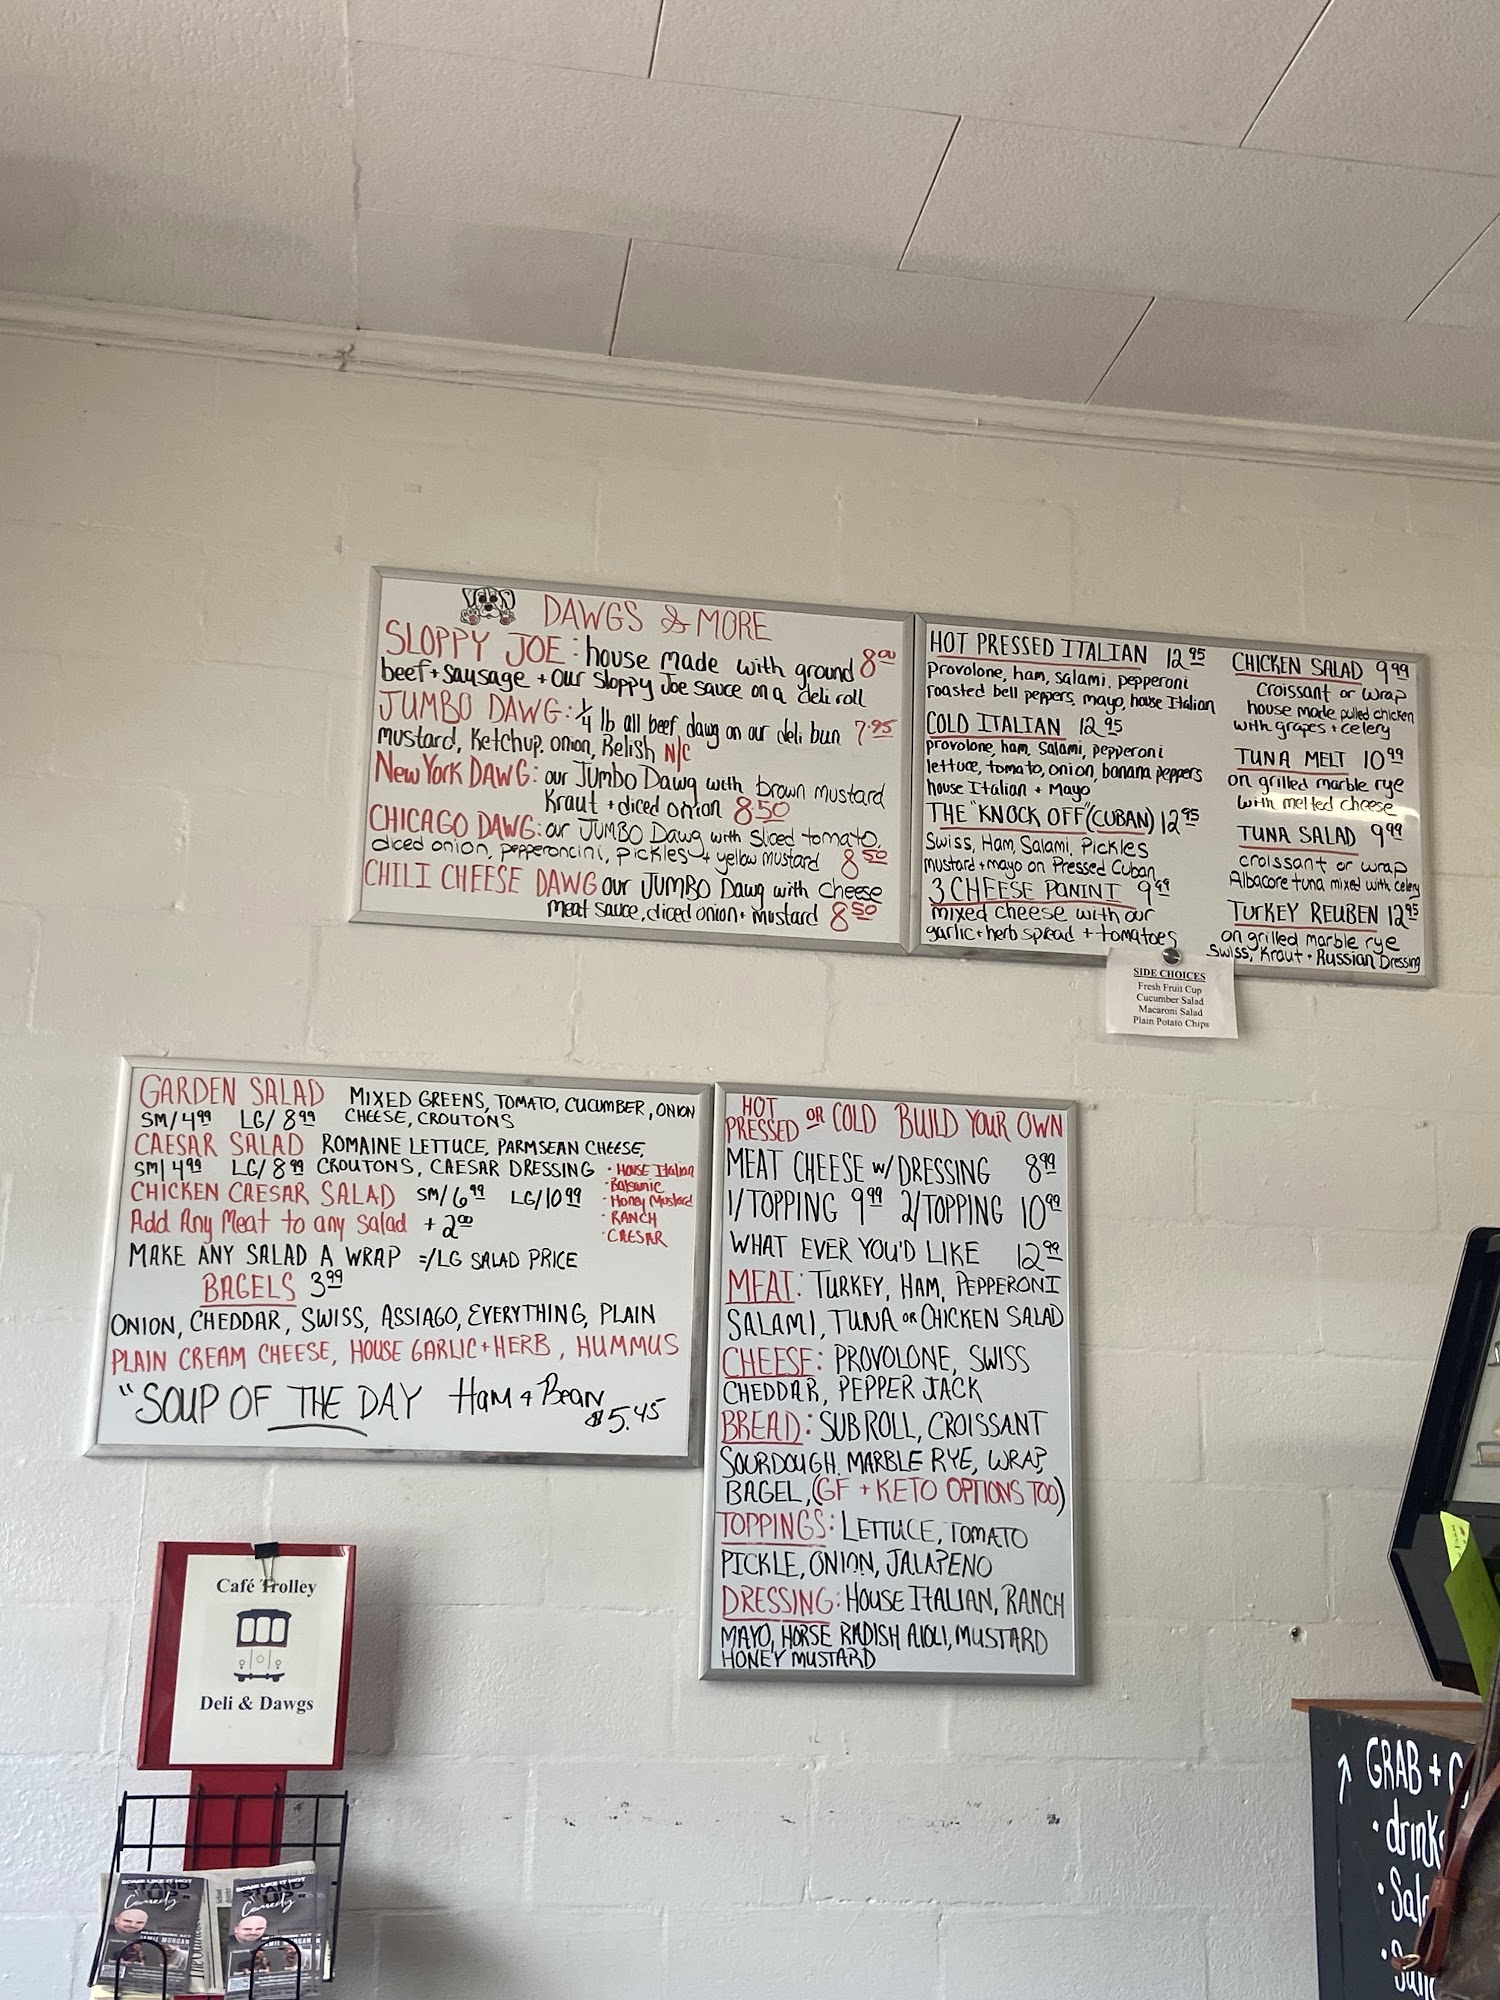 DAWGS & MORE
SLOPPY JOE: house made with ground 8.00
beef + sausage + our sloppy Joe sauce on a deli roll
JUMBO DAWG: 1/4 lb all beef dawg on our deli bun 7.95
mustard, Ketchup, onion, Relish N/C
New York DAWG: our Jumbo Dawg with brown mustard
Kraut + diced onion 8.50
CHICAGO DAWG: our JUMBO Dawg with sliced tomato,
diced onion, pepperoncini, pickles + yellow mustard 8.50
CHILI CHEESE DAWG our JUMBO Dawg with cheese
meat sauce, diced onion + mustard 8.50
HOT PRESSED ITALIAN 12.95
Provolone, ham, salami, pepperoni
roasted bell peppers, mayo, house Italian
COLD ITALIAN 12.95
provolone, ham, salami, pepperoni
lettuce, tomato, onion, banana peppers
house Italian + Mayo
THE "KNOCK OFF" (CUBAN) 12.95
Swiss, Ham, Salami, Pickles
mustard + mayo on Pressed Cuban
3 CHEESE PANINI 9.99
mixed cheese with our
garlic + herb spread + tomatoes
CHICKEN SALAD 9.99
Croissant or wrap
house made pulled chicken
with grapes + celery
TUNA MELT 10.99
on grilled marble rye
with melted cheese
TUNA SALAD 9.99
croissant or wrap
Albacore tuna mixed with celery
TURKEY REUBEN 12.95
on grilled marble rye
Swiss, Kraut + Russian Dressing
SIDE CHOICES
Fresh Fruit Cup
Cucumber Salad
Macaroni Salad
Plain Potato Chips
GARDEN SALAD MIXED GREENS, TOMATO, CUCUMBER, ONION
SM/4.99 LG/8.99 CHEESE, CROUTONS
CAESAR SALAD ROMAINE LETTUCE, PARMSEAN CHEESE,
SM/4.99 LG/8.99 CROUTONS, CAESAR DRESSING
CHICKEN CAESAR SALAD SM/6.99 LG/10.99
Add Any Meat to any Salad + 2.00
• House Italian
• Balsamic
• Honey Mustard
• RANCH
• CAESAR
MAKE ANY SALAD A WRAP =/LG SALAD PRICE
BAGELS 3.99
ONION, CHEDDAR, SWISS, ASSIAGO, EVERYTHING, PLAIN
PLAIN CREAM CHEESE, HOUSE GARLIC + HERB, HUMMUS
"SOUP OF THE DAY Ham & Bean
$5.45
HOT PRESSED OR COLD BUILD YOUR OWN
MEAT CHEESE W/DRESSING 8.99
1/TOPPING 9.99 2/TOPPING 10.99
WHAT EVER YOU'D LIKE 12.99
MEAT: TURKEY, HAM, PEPPERONI
SALAMI, TUNA OR CHICKEN SALAD
CHEESE: PROVOLONE, SWISS
CHEDDAR, PEPPER JACK
BREAD: SUB ROLL, CROISSANT
SOURDOUGH, MARBLE RYE, WRAP,
BAGEL, (GF + KETO OPTIONS TOO)
TOPPINGS: LETTUCE, TOMATO
PICKLE, ONION, JALAPENO
DRESSING: HOUSE ITALIAN, RANCH
MAYO, HORSE RADISH AIOLI, MUSTARD
HONEY MUSTARD
Café Trolley
Deli & Dawgs
SOME LIKE IT HOT
STAND UP
Comedy
SOME LIKE IT HOT
STAND UP
Comedy
GRAB +
• drinks